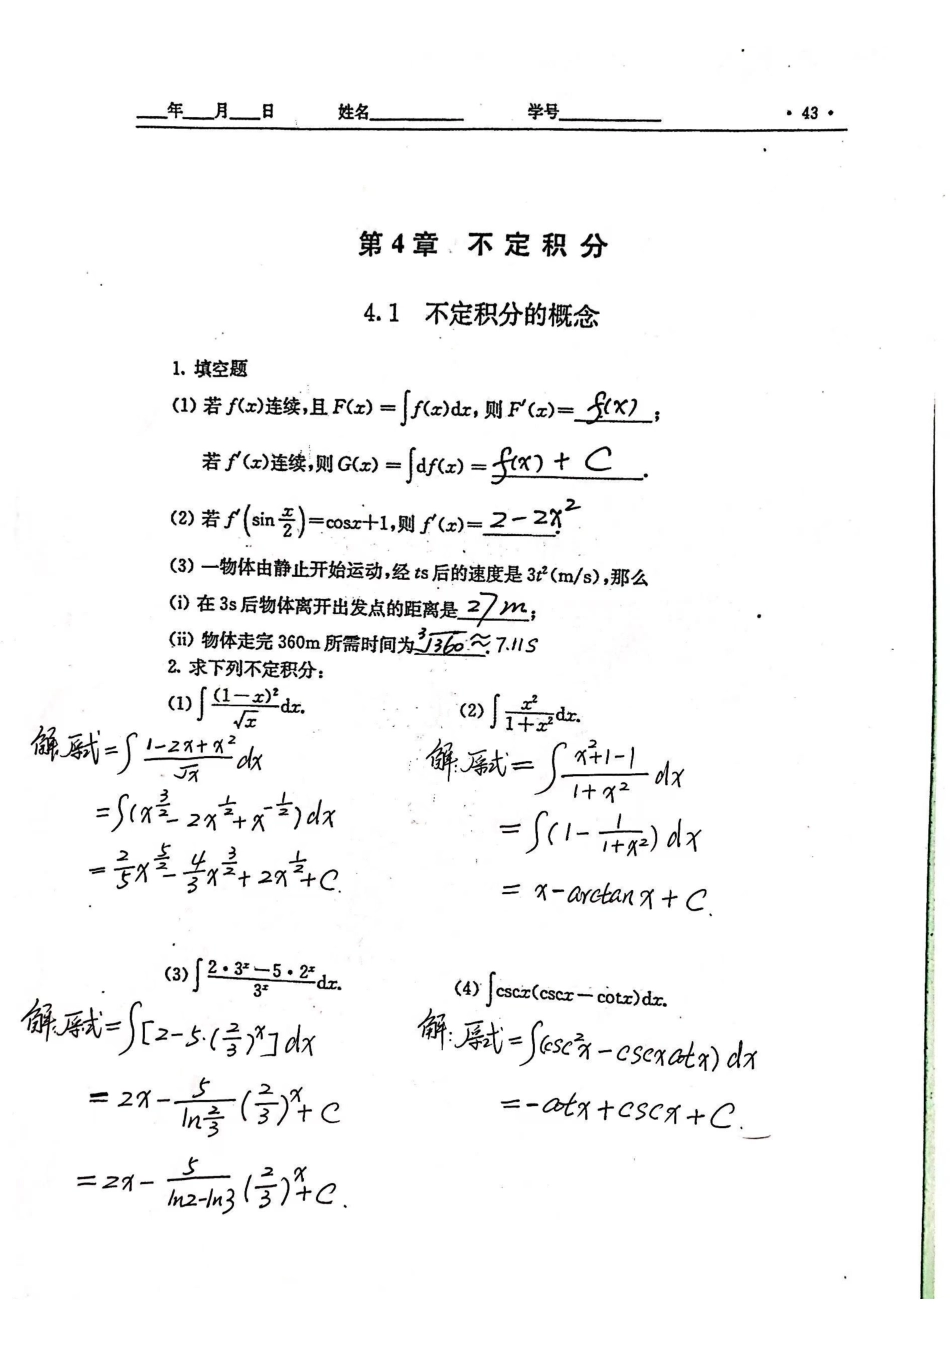 ___年___月___日 姓名________ 学号________ · 43 ·
第4章 不定积分
4.1 不定积分的概念
1. 填空题
(1) 若 f(x)连续,且 F(x) = ∫f(x)dx, 则 F′(x)= f(x) ;
若 f′(x)连续,则 G(x) = ∫df(x) = f(x) + C .
(2) 若 f′(sin x/2)=cosx+1,则 f′(x)= 2-2x² .
(3) 一物体由静止开始运动,经 ts 后的速度是 3t²(m/s),那么
(i) 在 3s 后物体离开出发点的距离是 27m ;
(ii) 物体走完 360m 所需时间为 ³√360 ≈ 7.11s .
2. 求下列不定积分:
(1) ∫ (1-x)²/√x dx.
解:原式=∫ (1-2x+x²)/√x dx
=∫(x^(3/2) - 2x^(1/2) + x^(-1/2)) dx
= 2/5 x^(5/2) - 4/3 x^(3/2) + 2x^(1/2) + C.
(2) ∫ x²/(1+x²) dx.
解:原式= ∫ (x²+1-1)/(1+x²) dx
= ∫(1 - 1/(1+x²)) dx
= x-arctanx + C.
(3) ∫ (2·3ˣ-5·2ˣ)/3ˣ dx.
解:原式=∫[2-5·(2/3)ˣ]dx
= 2x - 5/(ln 2/3) (2/3)ˣ + C
= 2x - 5/(ln2-ln3) (2/3)ˣ + C.
(4) ∫cscx(cscx-cotx)dx.
解:原式=∫(csc²x-cscxcotx)dx
=-cotx+cscx+C.